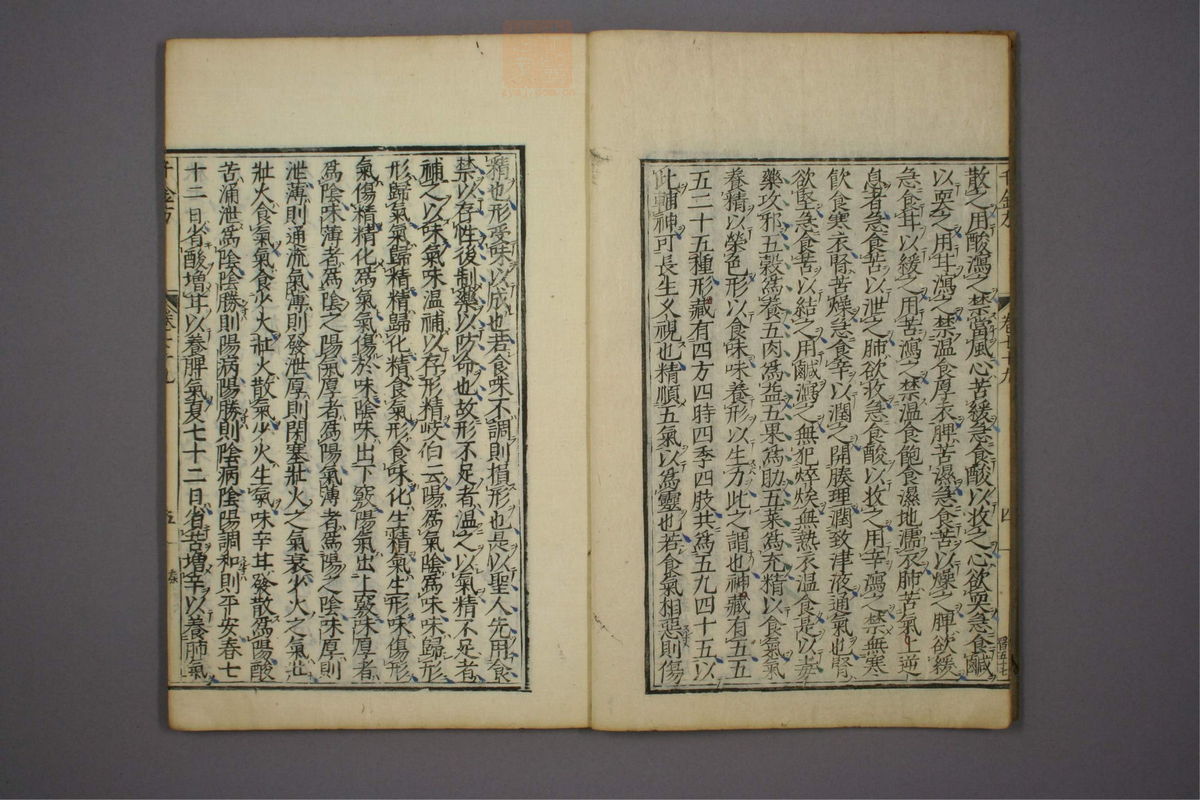 散之用酸瀉之禁當風心苦緩急食酸以收之心欲耎急食鹹
以耎之用甘瀉之禁温食厚衣脾苦濕急食苦以燥之脾欲緩
急食甘以緩之用苦瀉之禁温食飽食濕地濡衣肺苦氣上逆
息者急食苦以泄之肺欲收急食酸以收之用辛瀉之禁無寒
飲食寒衣腎苦燥急食辛以潤之開腠理潤致津液通氣也腎
欲堅急食苦以結之用鹹瀉之無犯焠㶼無熱衣温食是以毒
藥攻邪五穀爲養五肉爲益五果爲助五菜爲充精以食氣氣
養精以榮色形以食味味養形以生力此之謂也神藏有五五
五二十五種形藏有四方四時四季四肢共爲五九四十五以
此輔神可長生久視也精順五氣以爲靈也若食氣相惡則傷
千金方 卷二十九 四
精也形受味以成也若食味不調則損形也是以聖人先用食
禁以存性後制藥以防命也故形不足者温之以氣精不足者
補之以味氣味温補以存形精岐伯云陽爲氣陰爲味味歸形
形歸氣氣歸精精歸化精食氣形食味化生精氣生形味傷形
氣傷精精化爲氣氣傷於味陰味出下竅陽氣出上竅味厚者
爲陰味薄者爲陰之陽氣厚者爲陽氣薄者爲陽之陰味厚則
泄薄則通流氣薄則發泄厚則閉塞壯火之氣衰少火之氣壯
壯火食氣氣食少火壯火散氣少火生氣味辛甘發散爲陽酸
苦涌泄爲陰陰勝則陽病陽勝則陰病陰陽調和則平安春七
十二日省酸增甘以養脾氣夏七十二日省苦增辛以養肺氣
千金方 卷二十九 五